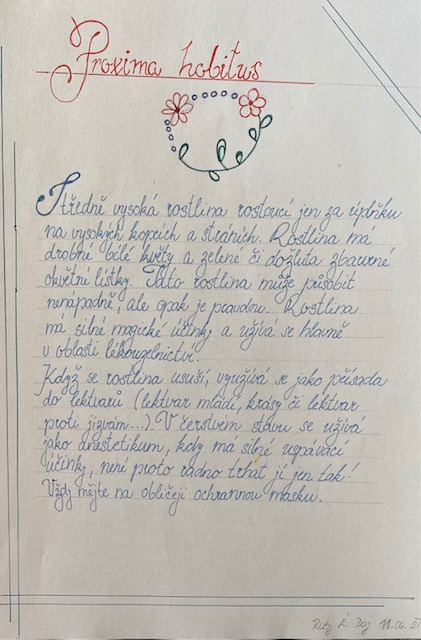 Proxima hobitus
Středně vysoká rostlina rostoucí jen za úplňku
na vysokých kopcích a stráních. Rostlina má
drobné bílé květy a zelené či dožluta zbarvené
okvětní lístky. Tato rostlina může působit
nenápadně, ale opak je pravdou. Rostlina
má silné magické účinky a užívá se hlavně
v oblasti lékouzelnictví.
Když se rostlina usuší, využívá se jako přísada
do lektvarů (lektvar mládí, krásy či lektvar
proti jizvám...). V čerstvém stavu se užívá
jako anestetikum, kdy má silné uspávací
účinky, není proto radno trhat jí jen tak!
Vždy mějte na obličeji ochrannou masku.